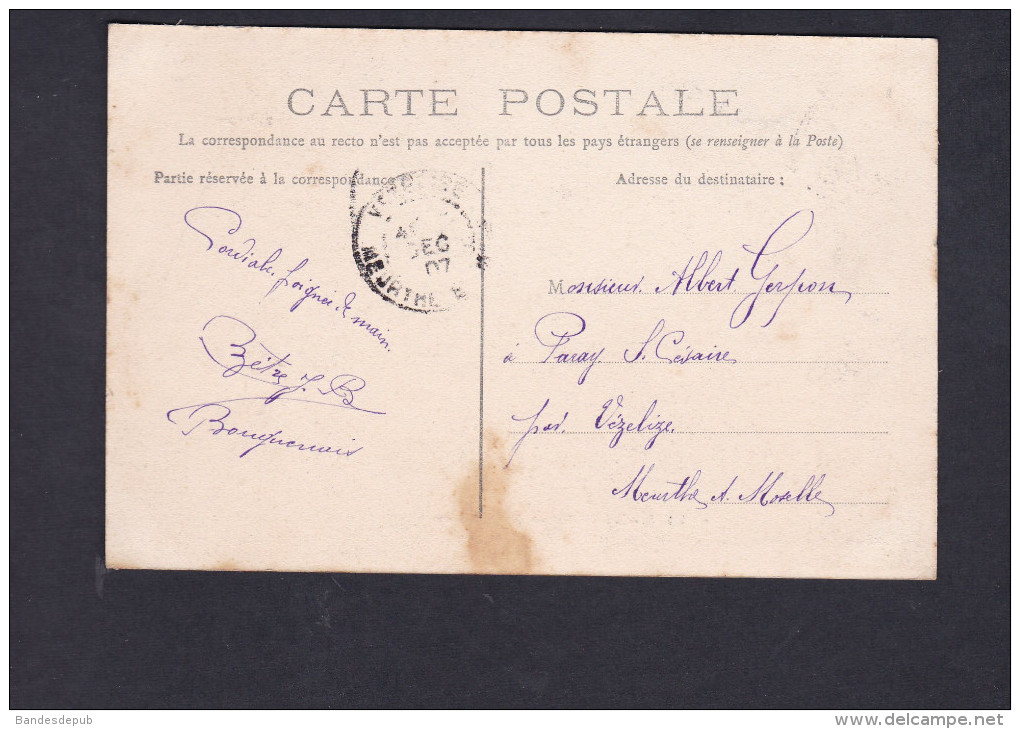 CARTE POSTALE
La correspondance au recto n'est pas acceptée par tous les pays étrangers (se renseigner à la Poste)
Partie réservée à la correspondance
Adresse du destinataire :
EC
07
MEURTHE
Cordiale poignée de main.
J. B
Monsieur Albert Gerpon
à Paray St. Césaire
par Vézelize.
Meurthe et Moselle
Bandesdepub
www.delcampe.net